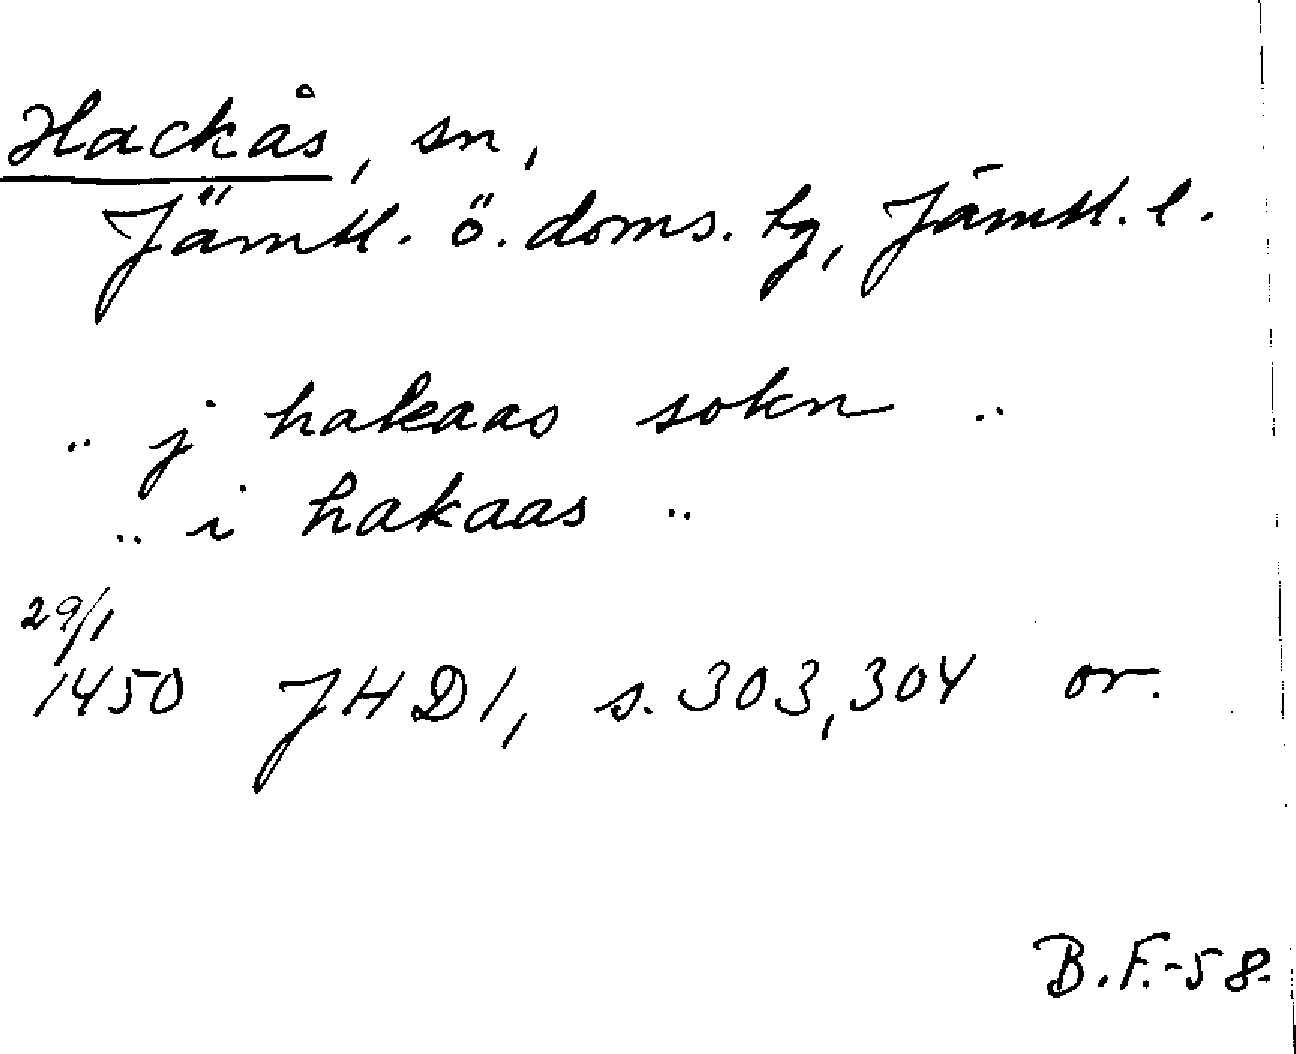 Hackås, sn,
Jämtl. ö. doms. tg, Jämtl. l.
„ j hakaas sokn „
„ i hakaas „
29/1
1450 JHD1, s. 303, 304 or.
B. F. -58.